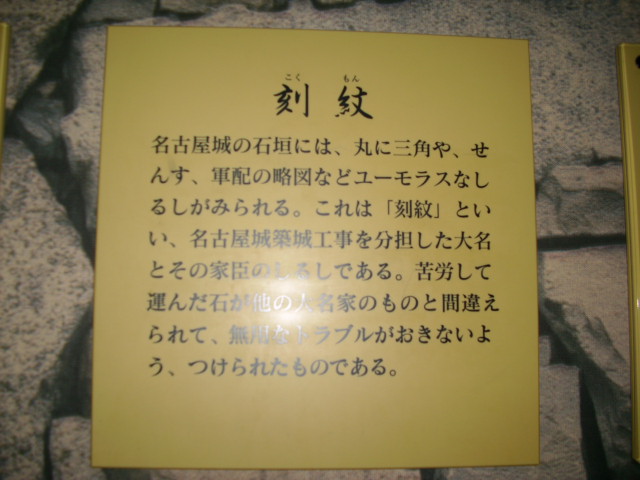 こく もん
刻紋
名古屋城の石垣には、丸に三角や、せ
んす、軍配の略図などユーモラスなし
るしがみられる。これは「刻紋」とい
い、名古屋城築城工事を分担した大名
とその家臣のしるしである。苦労して
運んだ石が他の大名家のものと間違え
られて、無用なトラブルがおきないよ
う、つけられたものである。